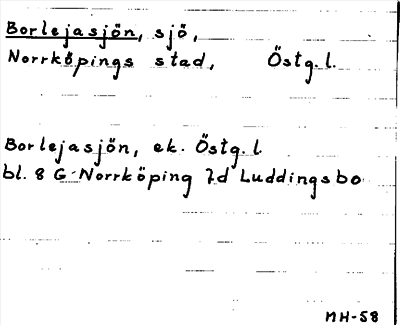 Borlejasjön, sjö,
Norrköpings stad, Östg. l.
Borlejasjön, ek. Östg. l
bl. 8 G Norrköping 7d Luddingsbo
MH-58